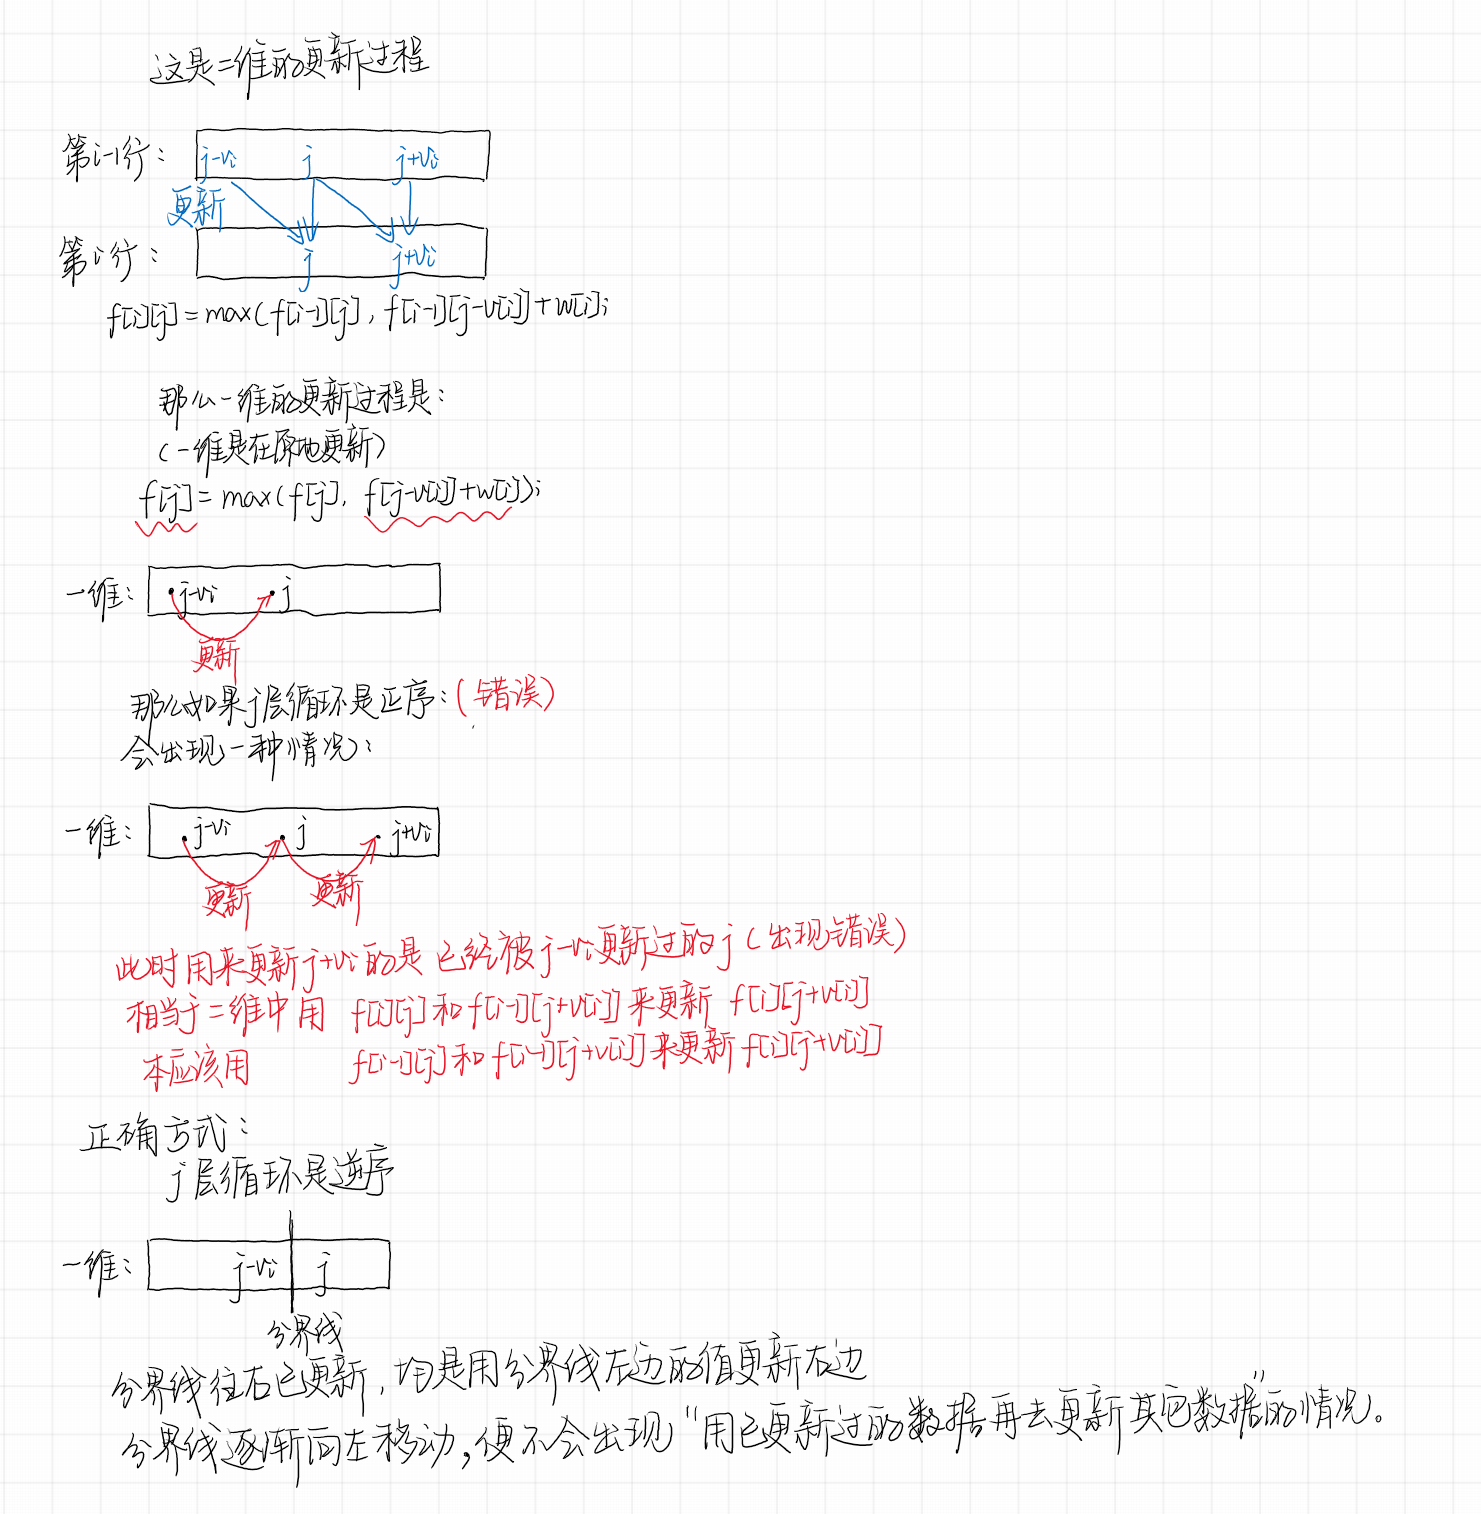 这是二维的更新过程
第i-1行： j-vi j j+vi
更新
第i行： j j+vi
f[i][j]=max(f[i-1][j], f[i-1][j-v[i]]+w[i];
那么一维的更新过程是：
（一维是在原地更新）
f[j]=max(f[j], f[j-v[i]]+w[i]);
一维： j-vi j
更新
那么如果j层循环是正序：（错误）
会出现一种情况：
一维： j-vi j j+vi
更新 更新
此时用来更新j+vi的是 已经被j-vi更新过的j（出现错误）
相当于二维中用 f[i][j]和f[i-1][j+v[i]]来更新 f[i][j+v[i]]
本应该用 f[i-1][j]和f[i-1][j+v[i]]来更新f[i][j+v[i]]
正确方式：
j层循环是逆序
一维： j-vi j
分界线
分界线往右已更新，均是用分界线左边的值更新右边
分界线逐渐向左移动，便不会出现“用已更新过的数据再去更新其它数据”的情况。